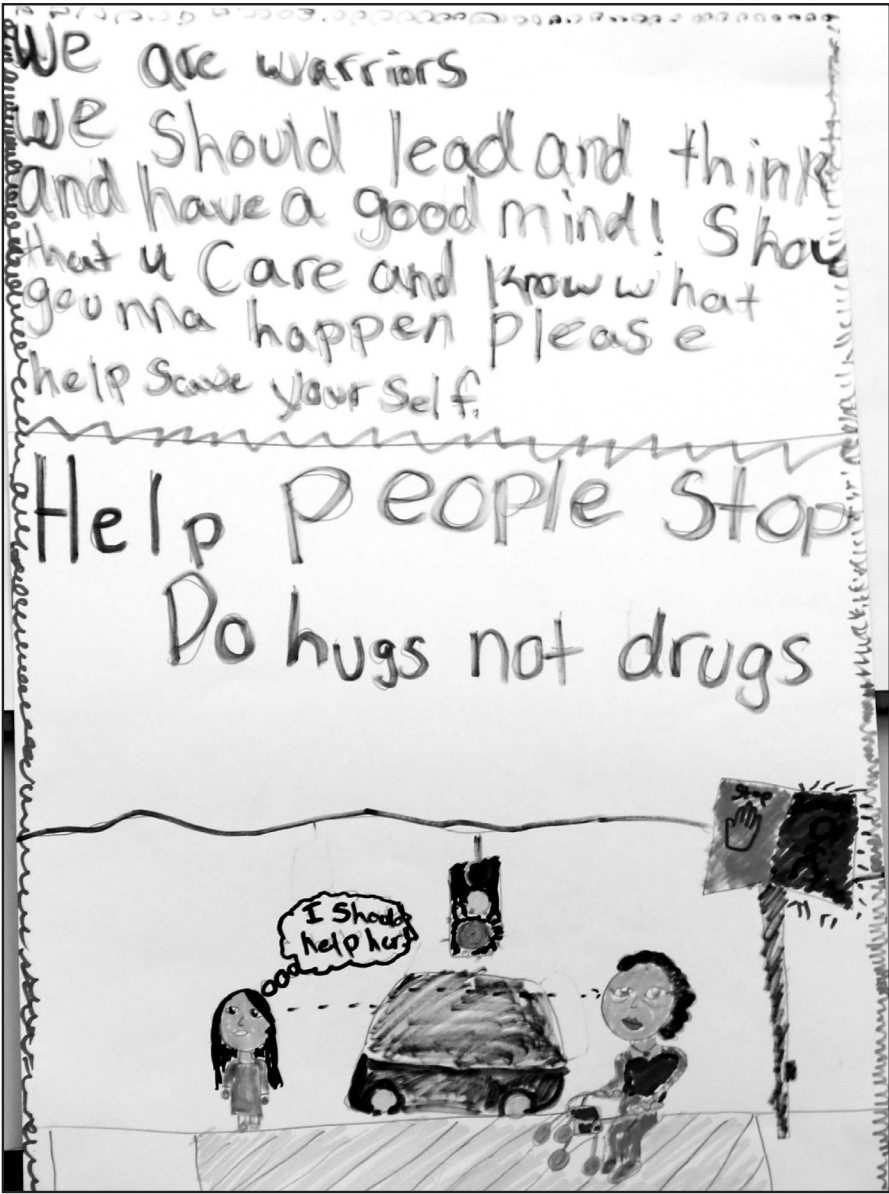 We are warriors
We Should lead and think
and have a good mind! Show
that u Care and know what
gounna happen please
help save yourself.
Help People Stop
Do hugs not drugs
Stop
I Should
help her